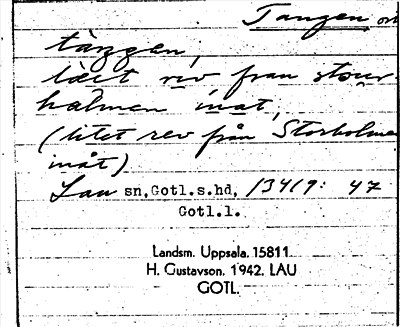 Tangen on
tàŋgen,
làit rɛv fran stour-
halmen inat,
(litet rev från Storholmen
inåt)
Lau sn, Gotl.s.hd, 13419: 47
Gotl.l.
Landsm. Uppsala. 15811.
H. Gustavson. 1942. LAU
GOTL.